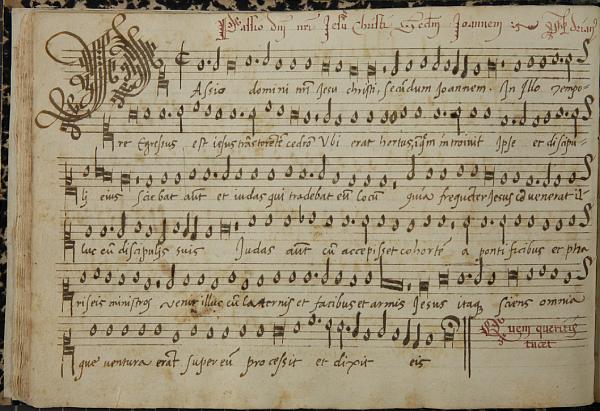 Passio dnj nri Jesu Christi Secdm Joannem
Asio domini nri Jesu christi, secũdum Joannem. In Illo Tempo-
re Egressus est iesus trãs torrentẽ cedron Vbi erat hortus, i quẽm introiuit Ipse et discipu-
lj eius sciebat aũt et iudas qui tradebat eũ locũ quia frequẽter Jesus cõuenerat il-
luc cũ discipulis suis Judas aũt cũ accepisset cohortẽ a pontificibus et pha
riseis ministros venit illuc cũ laternis et facibus et armis Jesus itaqȝ sciens omnia
que ventura erãt super eũ processit et dixit eis
Quem queritis
tacet